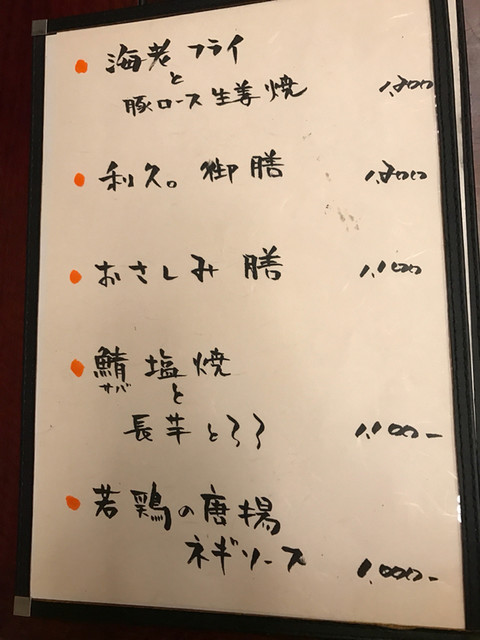 海老フライ
と
豚ロース生姜焼
利久。御膳
おさしみ膳 1,100
鯖塩焼
サバ
と
長芋とろろ 1,100-
若鶏の唐揚
ネギソース 1,000-